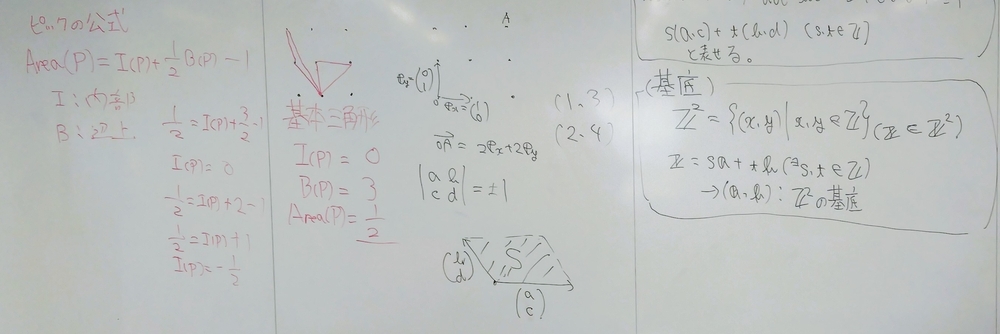 ピックの公式
Area(P) = I(P) + 1/2 B(P) - 1
I : 内部
B : 辺上
1/2 = I(P) + 3/2 - 1
I(P) = 0
1/2 = I(P) + 2 - 1
1/2 = I(P) + 1
I(P) = -1/2
基本三角形
I(P) = 0
B(P) = 3
Area(P) = 1/2
A
e_y = (0 1)
O
e_x = (1 0)
OA = 2e_x + 2e_y
|a b c d| = ±1
(1, 3)
(2, 4)
(b d)
S
(a c)
s(a, c) + t(b, d) (s, t ∈ ℤ)
と表せる。
(基底)
ℤ² = {(x, y) | x, y ∈ ℤ} (𝕫 ∈ ℤ²)
𝕫 = s𝕒 + t𝕓 (∃s, t ∈ ℤ)
→ (𝕒, 𝕓) : ℤ²の基底